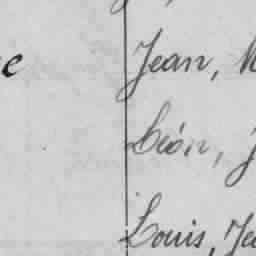 Jean,
Léon,
Louis, Je